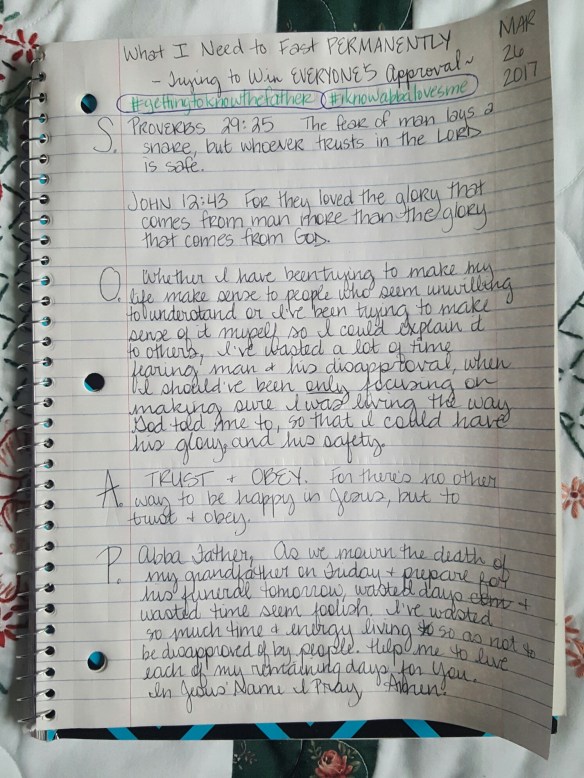 What I Need to Fast PERMANENTLY
- Trying to Win EVERYONE'S Approval~
MAR
26
2017
#gettingtoknowthefather #iknowabbalovesme
S. PROVERBS 29:25 The fear of man lays a
snare, but whoever trusts in the LORD
is safe.
JOHN 12:43 For they loved the glory that
comes from man more than the glory
that comes from GOD.
O. Whether I have been trying to make my
life make sense to people who seem unwilling
to understand or I've been trying to make
sense of it myself so I could explain it
to others, I've wasted a lot of time
fearing man + his disapproval, when
I should've been only focusing on
making sure I was living the way
God told me to, so that I could have
his glory, and his safety.
A. TRUST + OBEY. For there's no other
way to be happy in Jesus, but to
trust + obey.
P. Abba Father, As we mourn the death of
my grandfather on Friday + prepare for
his funeral tomorrow, wasted days +
wasted time seem foolish. I've wasted
so much time + energy living so as not to
be disapproved of by people. Help me to live
each of my remaining days for You.
In Jesus' Name I Pray Amen!